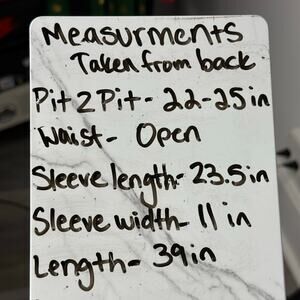 Measurments
Taken from back
Pit 2 Pit- 22-25in
Waist- Open
Sleeve length- 23.5in
Sleeve width- 11 in
Length- 39in